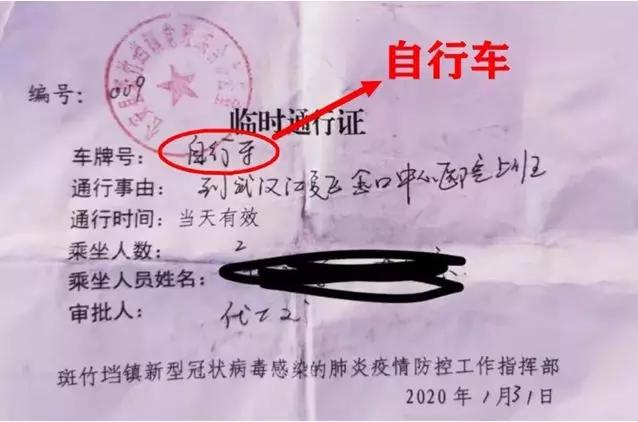 自行车
编号： 009
临时通行证
车牌号： 自行车
通行事由： 到武汉江夏区金口中心医院上班
通行时间：当天有效
乘坐人数： 2
乘坐人员姓名：
审批人：
斑竹垱镇新型冠状病毒感染的肺炎疫情防控工作指挥部
2020 年 1月31日